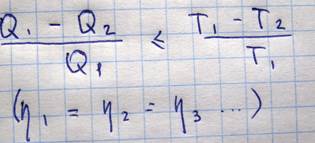 Q₁ - Q₂ / Q₁ ≤ T₁ - T₂ / T₁
(η₁ = η₂ = η₃ ...)